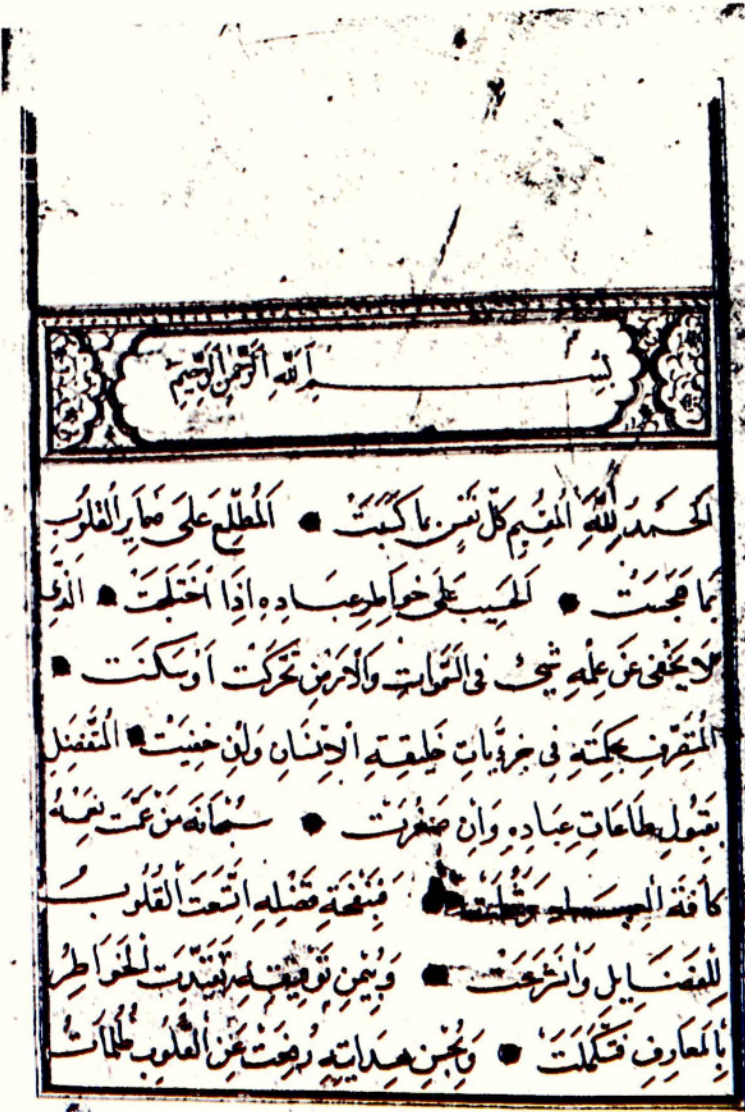 بِسْمِ اَللّٰهِ اَلرَّحْمٰنِ اَلرَّحِيْمِ
اَلْحَمْدُ لِلّٰهِ اَلْمُقِيْمِ كُلَّ نَفْسٍ بِمَا كَسَبَتْ ● اَلْمُطَّلِعِ عَلٰى ضَمَايِرِ اَلْقُلُوْبِ
بِمَا هَجَسَتْ ● اَلْحَسِيْبِ عَلٰى خَوَاطِرِ عِبَادِهِ اِذَا اَخْتَلَجَتْ ● اَلَّذِى
لَا يَخْفٰى عَنْ عِلْمِهِ شَيْئٌ فِى السَّمٰوَاتِ وَالْاَرْضِ تَحَرَّكَتْ اَوْ سَكَنَت ●
اَلْمُتَصَرِّفِ بِحِكْمَتِهِ فِى جُزْئِيَاتِ خَلِيْقَتِهِ الْاِنْسَانِ وَلَئِنْ خَفِيَتْ ● اَلْمُتَفَضِّلِ
بِقَبُوْلِ طَاعَاتِ عِبَادِهِ وَاِنْ صَغُرَتْ ● سُبْحَانَهُ مَنْ عَمَّتْ نِعَمُهُ
كَافَّةَ الْعِبَادِ وَشَمَلَتْ ● فَبِنَفْحَةِ فَضْلِهِ اتَّسَعَتِ الْقُلُوْبُ
لِلْفَضَايِلِ وَاَنْشَرَحَتْ ● وَبِيُمْنِ تَوْفِيْقِهِ تَقَيَّدَتِ الْخَوَاطِرُ
بِالْمَعَارِفِ فَتَكَمَّلَتْ ● وَبِحُسْنِ هِدَايَتِهِ رُفِعَتْ عَنِ الْقُلُوْبِ ظُلُمَاتُ